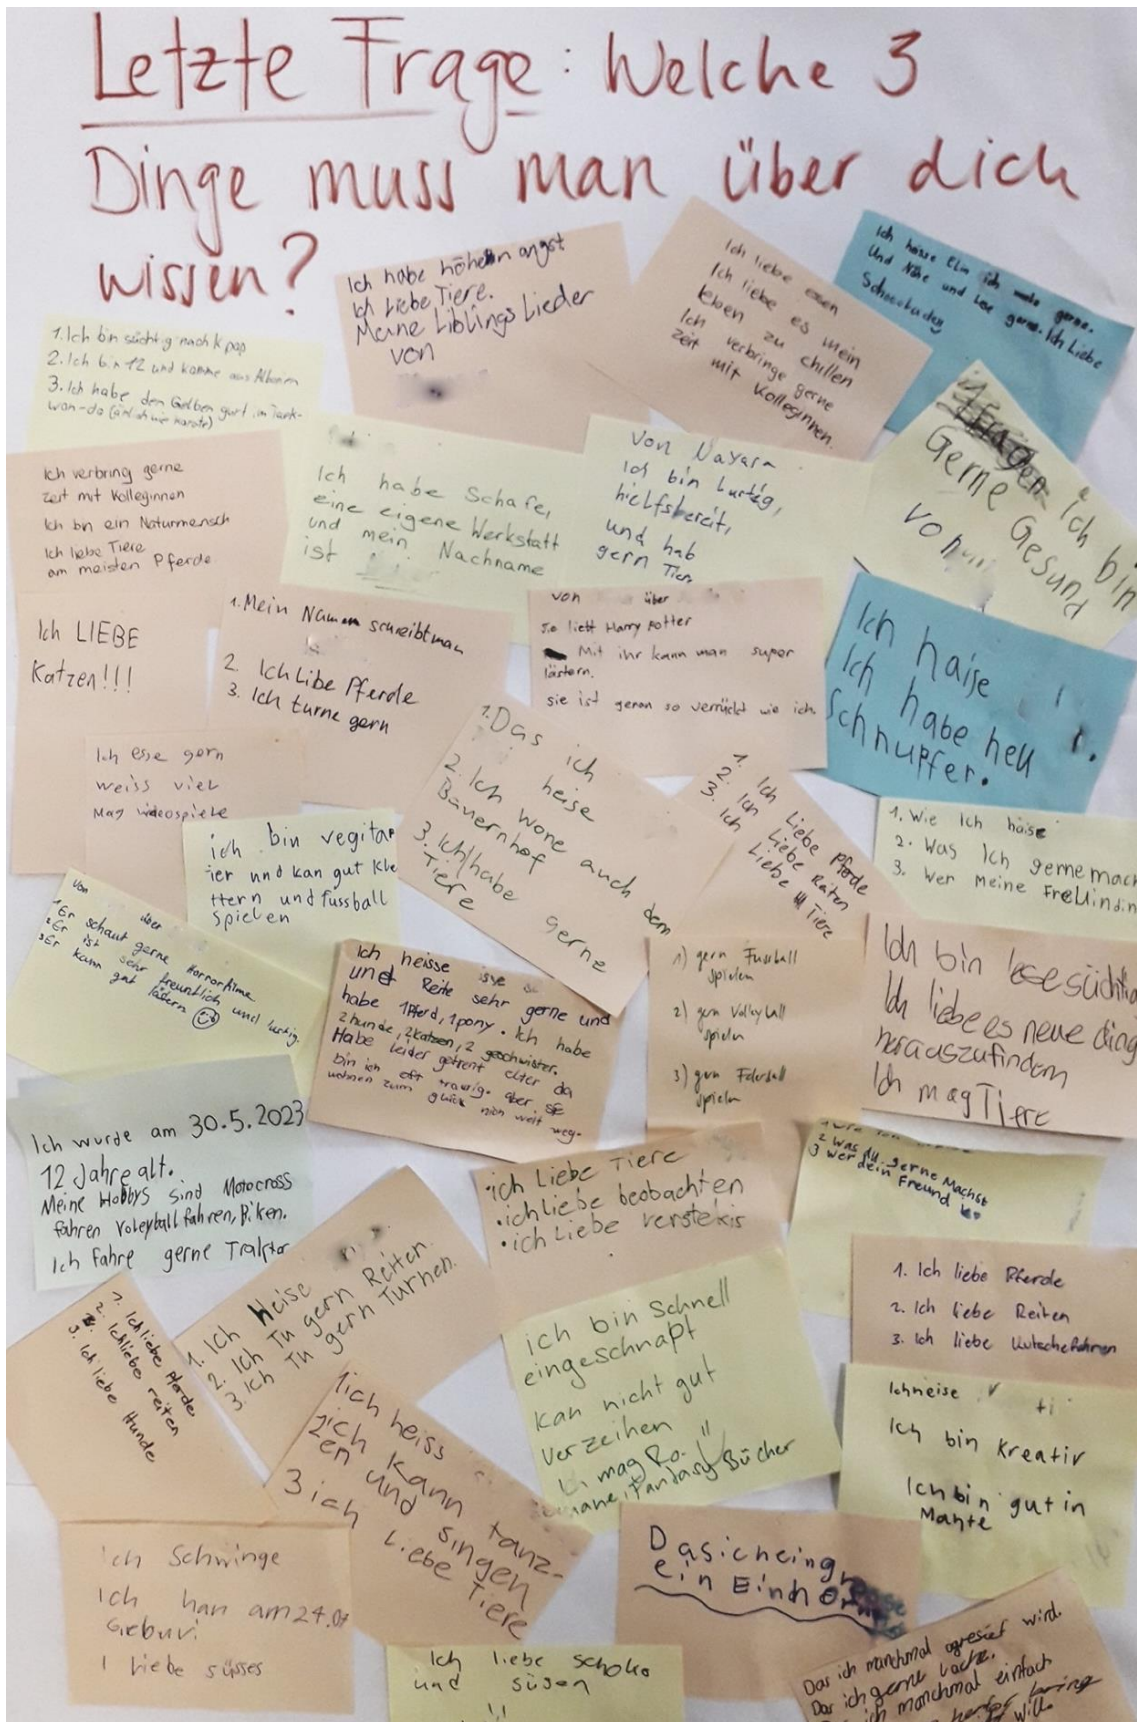 Letzte Frage: Welche 3
Dinge muss man über dich
wissen?
Ich habe höhenangst
Ich Liebe Tiere.
Meine Liblings Lieder
von
Ich liebe essen
Ich liebe es mein
leben zu chillen
Ich verbringe gerne
zeit mit Kolleginnen.
Ich heisse Elin ich male gerne.
Und Nähe und Lese gerne. Ich Liebe
1. Ich bin süchtig nach K pop
2. Ich bin 12 und komme aus Albanien
3. Ich habe den Gelben gurt im
Ich verbring gerne
zeit mit Kolleginnen
Ich bin ein Naturmensch
Ich liebe Tiere
am meisten Pferde.
Ich habe Schafe,
eine eigene Werkstatt
und mein Nachname
ist
von Nayara
Ich bin
und hab
gern Tiere
Ich bin
Gerne Gesund
von
Ich LIEBE
Katzen!!!
1. Mein Namen schreibt man
2. Ich Libe Pferde
3. Ich turne gern
von über
Sie liebt Harry Potter
Mit ihr kann man super
lästern.
sie ist genau so verrückt wie ich.
Ich haise
Ich habe heu
Schnupfer.
Ich esse gern
weiss viel
Mag videospiele
ich bin vegitar
ier und kan gut kle
ttern und fussball
Spielen
1. Das ich
heise
2. Ich wone auch dem
Bauernhof
3. Ich habe gerne
Tiere
1. Ich Liebe Pferde
2. Ich Liebe Raten
3. Ich Liebe !!! Tiere
1. Wie Ich haise
2. Was Ich gerne mach
3. Wer Meine Freundin
von über
1 Er schaut gerne Horrorfilme
2 Er ist sehr freuntlich und lustig.
3 Er kann gut lästern
Ich heisse
und Reite sehr gerne und
habe 1Pferd, 1pony. Ich habe
2hunde, 2katzen, 2 geschwister.
Habe leider getrent elter da
bin ich oft traurig. aber sie
wohnen zum glück nich weit weg.
1) gern Fussball
spielen
2) gern Volleyball
spielen
3) gern Federball
spielen
Ich bin lesesüchtig
Ich liebe es neue ding
herauszufinden
Ich mag Tiere
Ich wurde am 30.5.2023
12 Jahre alt.
Meine Hobbys sind Motocross
fahren Voleyball fahren, Biken.
Ich Fahre gerne Traktor
•ich Liebe Tiere
•ich liebe beobachten
•ich Liebe verstekis
2 Was du gerne Machst
3 Wer dein Freund
1. Ich Heise
2. Ich Tu gern Reiten.
3. Ich Tu gern Turnen.
1. Ich liebe Pferde
2. Ich liebe Reiten
3. Ich liebe Kutschefahren
1. Ich liebe Pferde
2. Ich liebe reiten
3. Ich liebe Hunde
ich bin Schnell
eingeschnapt
kan nicht gut
verzeihen
mag Ro-
mane, Fantasy Bücher
Ich heise
Ich bin Kreativ
Ich bin gut in
Mahte
1 ich heiss
2 ich kann tanz-
en und singen
3 ich Liebe Tiere
Ich Schwinge
Ich han am 24.07
Geburi
I liebe süsses
ein Einhorn
Ich liebe schoko
und süsen
Das ich manchmal agresief wird.
Das ich gerne lache.
ich manchmal einfach
will.